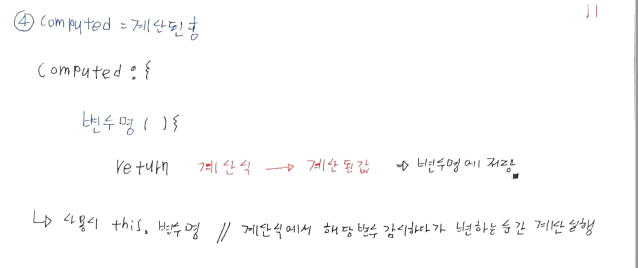 11
④ Computed = 계산된형
Computed : {
변수명 ( ) {
return 계산식 → 계산된값 ⇒ 변수명에 저장
↳ 사용시 this. 변수명 // 계산식에서 해당 변수 감시하다가 변하는 순간 계산 실행